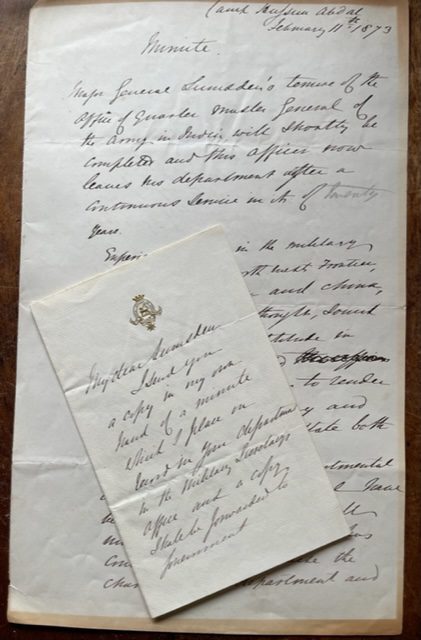 Camp Hussun Abdal
February 11th 1873
Minute.
Major General Lumsden's tenure of the
Office of Quarter Master General of
the Army in India will shortly be
completed and this officer now
leaves his department after a
continuous service in it of twenty
years.
in the military
North West Frontier,
and China,
thought, sound
in
to render
and
both
have
the
department and
My dear Lumsden
I send you
a copy in my own
hand of a minute
which I place on
record in your department
in the Military Secretary's
office and a copy
shall be forwarded to
Government